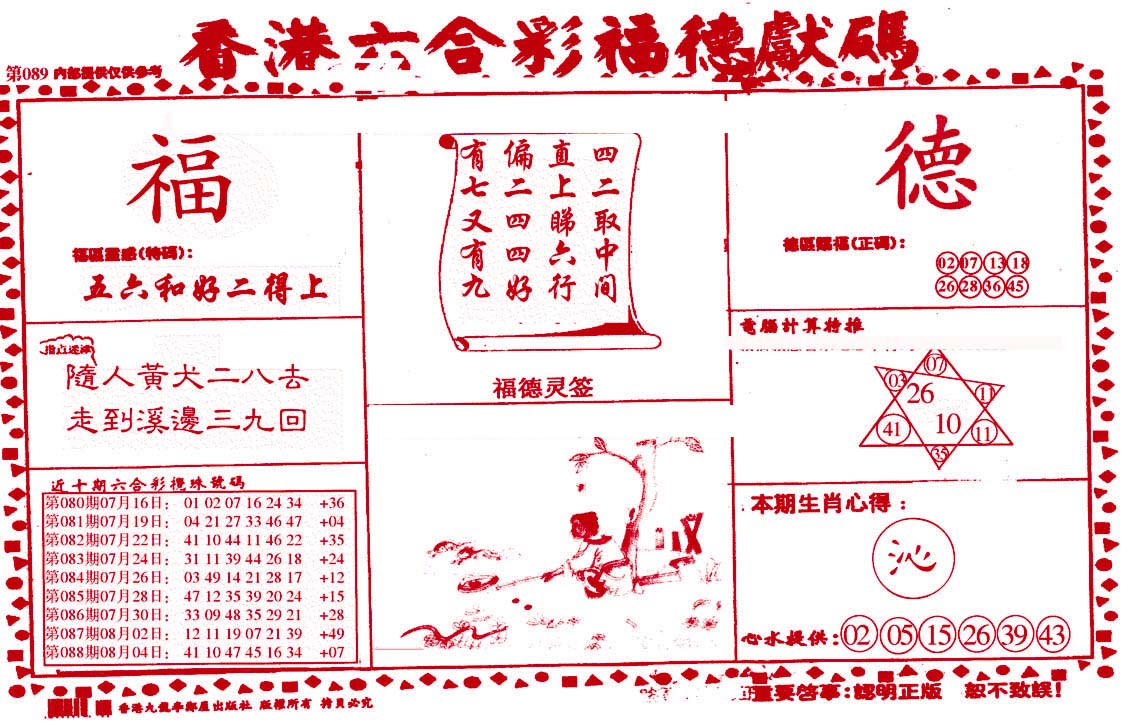 香港六合彩福德獻碼
第089 內部提供仅供参考
福
福區靈感(特碼):
五六和好二得上
指点迷津
隨人黃犬二八去
走到溪邊三九回
近十期六合彩攪珠號碼
第080期07月16日: 01 02 07 16 24 34 +36
第081期07月19日: 04 21 27 33 46 47 +04
第082期07月22日: 41 10 44 11 46 22 +35
第083期07月24日: 31 11 39 44 26 18 +24
第084期07月26日: 03 49 14 21 28 17 +12
第085期07月28日: 47 12 35 39 20 24 +15
第086期07月30日: 33 09 48 35 29 21 +28
第087期08月02日: 12 11 19 07 21 39 +49
第088期08月04日: 41 10 47 45 16 34 +07
四二取中间
直上睇六行
偏二四四好
有七又有九
福德灵签
德
德區賜福(正碼):
02 07 13 18
26 28 36 45
電腦計算特推
07
03 26 11
41 10 11
35
本期生肖心得:
沁
心水提供: 02 05 15 26 39 43
重要啓事:認明正版 恕不致誤!
香港九龍 出版社 版權所有 拷貝必究